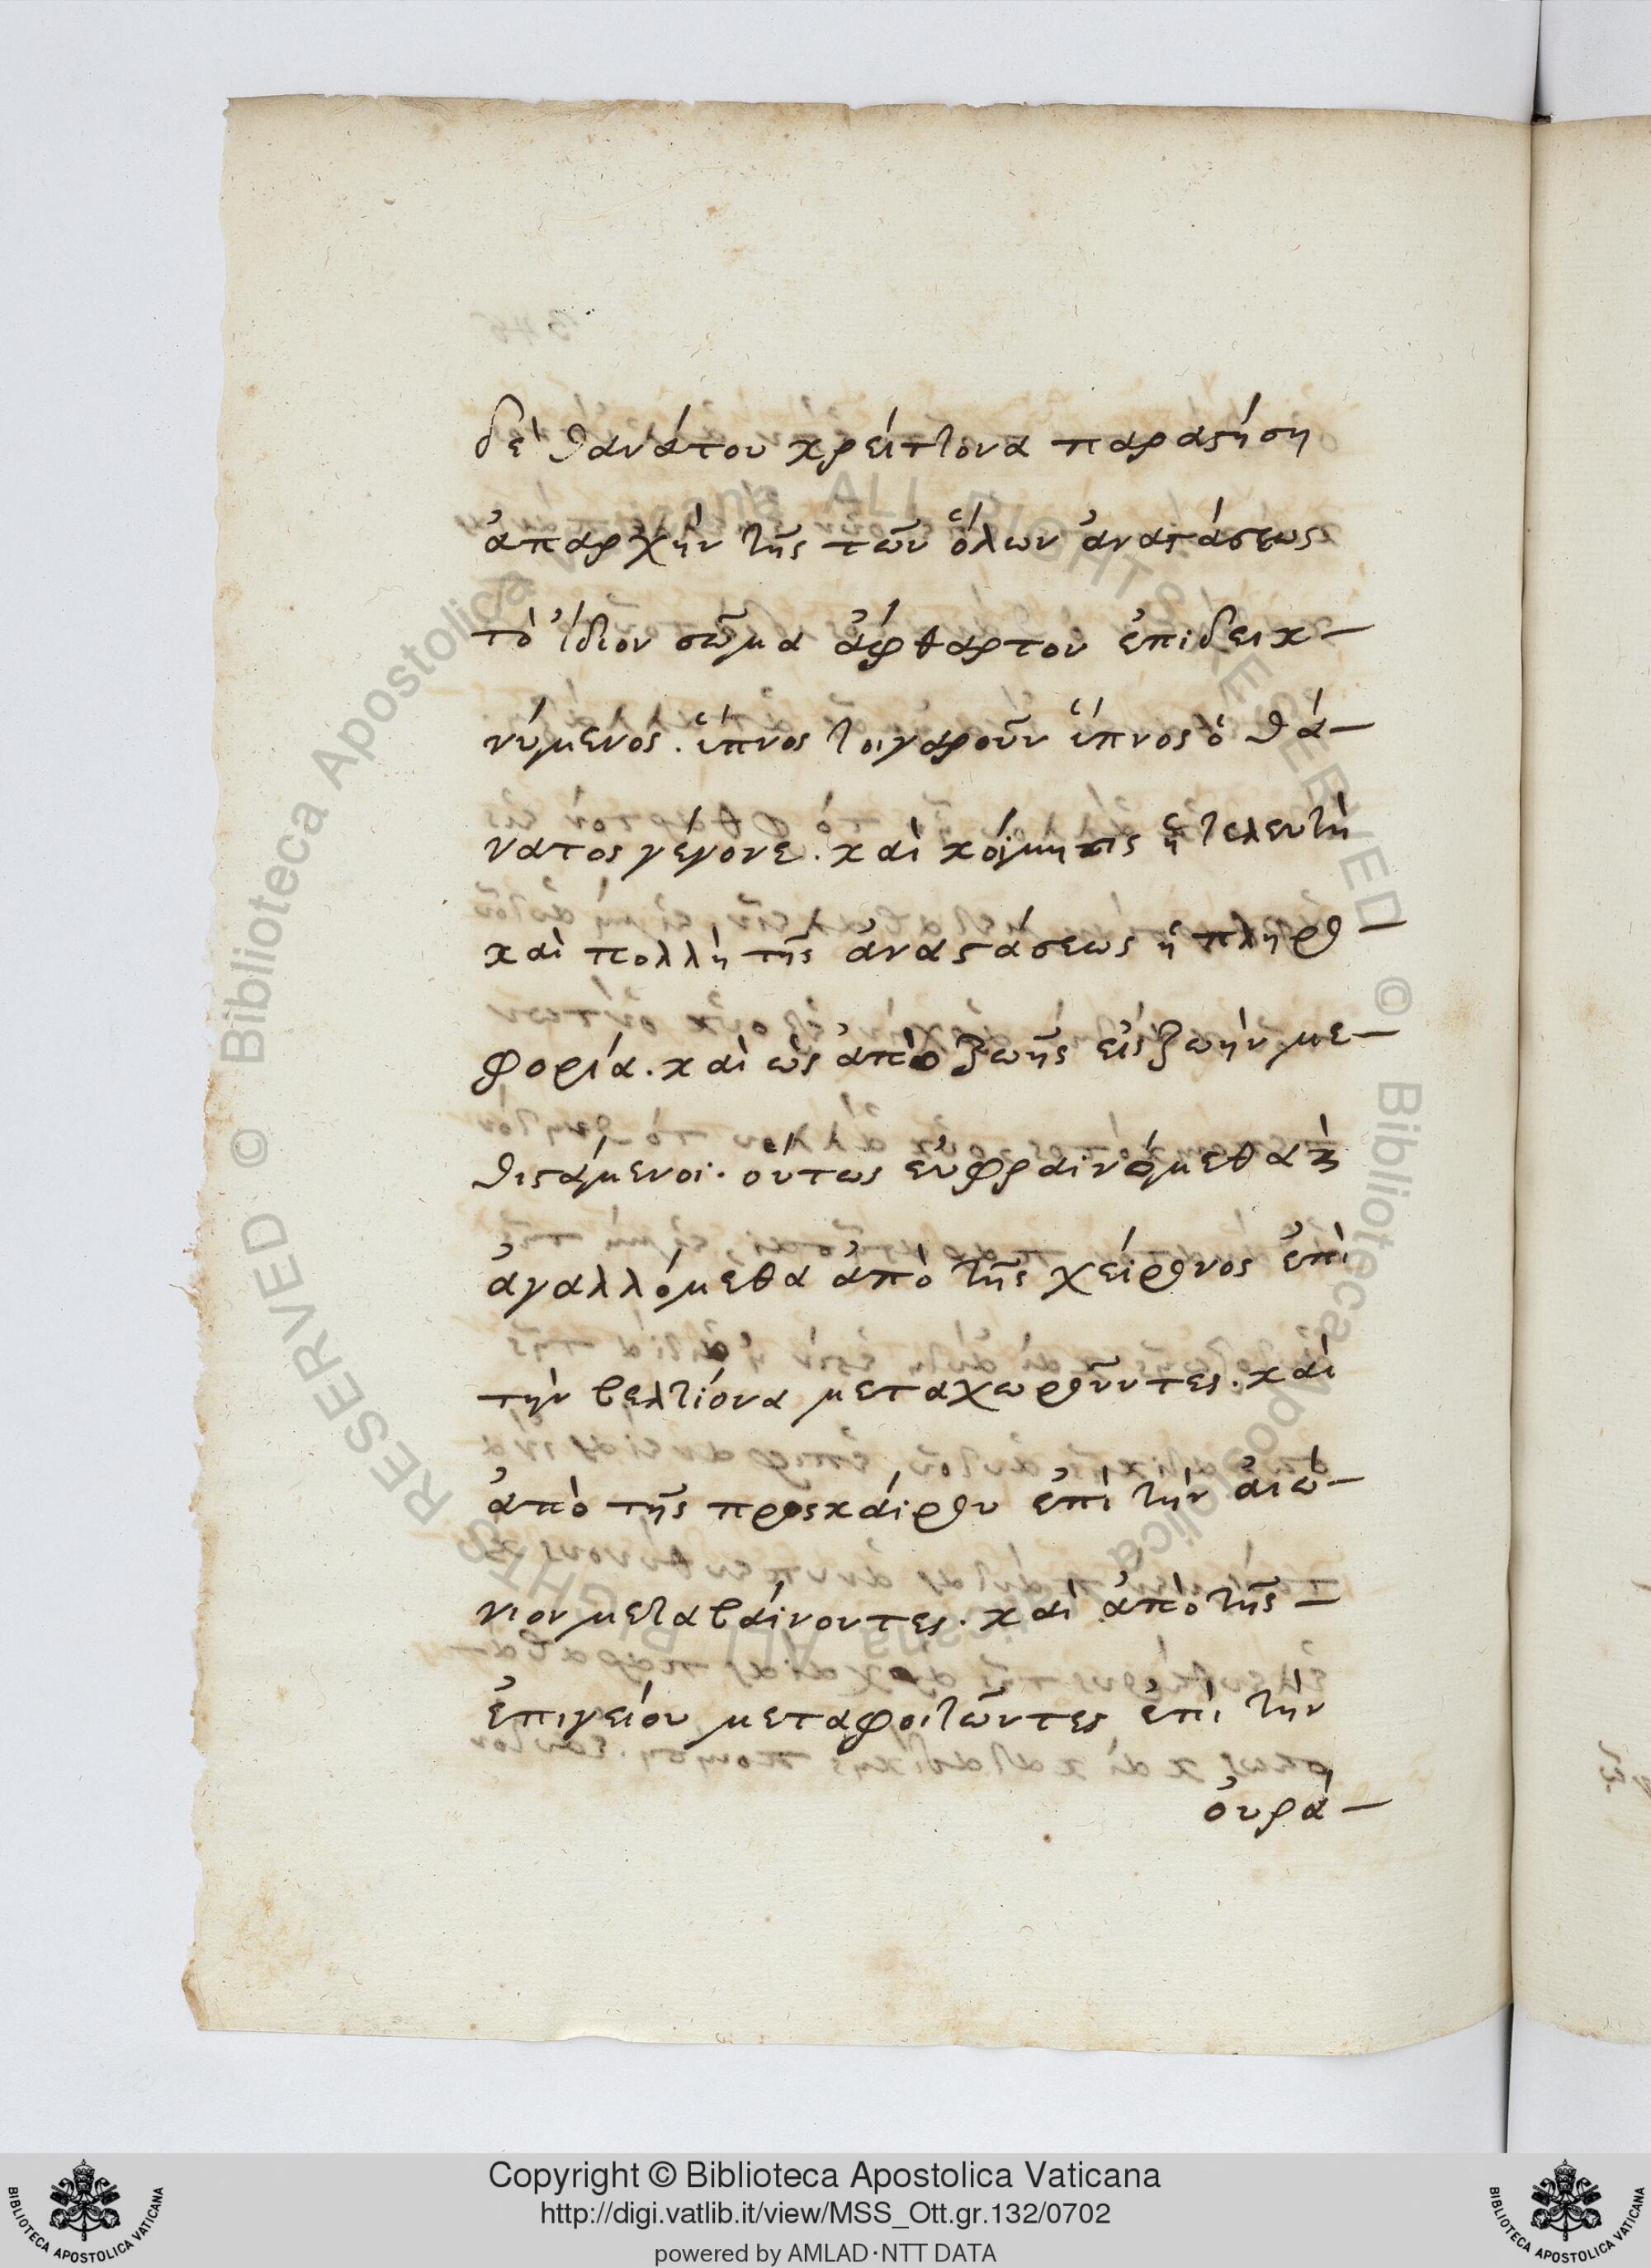 δὲ θανάτου κρείττονα παραστήση
ἀπαρχὴν τῆς τῶν ὅλων ἀναστάσεως
τὸ ἴδιον σῶμα ἄφθαρτον ἐπιδεικ-
νύμενος. ὕπνος τοιγαροῦν ὕπνος ὁ θά-
νατος γέγονε. καὶ κοίμησις ἡ τελευτὴ
καὶ πολλὴ τῆς ἀναστάσεως ἡ πληρο-
φορία. καὶ ὡς ἀπὸ ζωῆς εἰς ζωὴν με-
θιστάμενοι. οὕτως εὐφραινόμεθα καὶ
ἀγαλλόμεθα ἀπὸ τῆς χείρονος ἐπὶ
τὴν βελτίονα μεταχωροῦντες. καὶ
ἀπὸ τῆς προσκαίρου ἐπὶ τὴν αἰώ-
νιον μεταβαίνοντες. καὶ ἀπὸ τῆς-
ἐπιγείου μεταφοιτῶντες ἐπὶ τὴν
οὐρά-
Copyright © Biblioteca Apostolica Vaticana
http://digi.vatlib.it/view/MSS_Ott.gr.132/0702
powered by AMLAD·NTT DATA
BIBLIOTECA APOSTOLICA VATICANA
BIBLIOTECA APOSTOLICA VATICANA